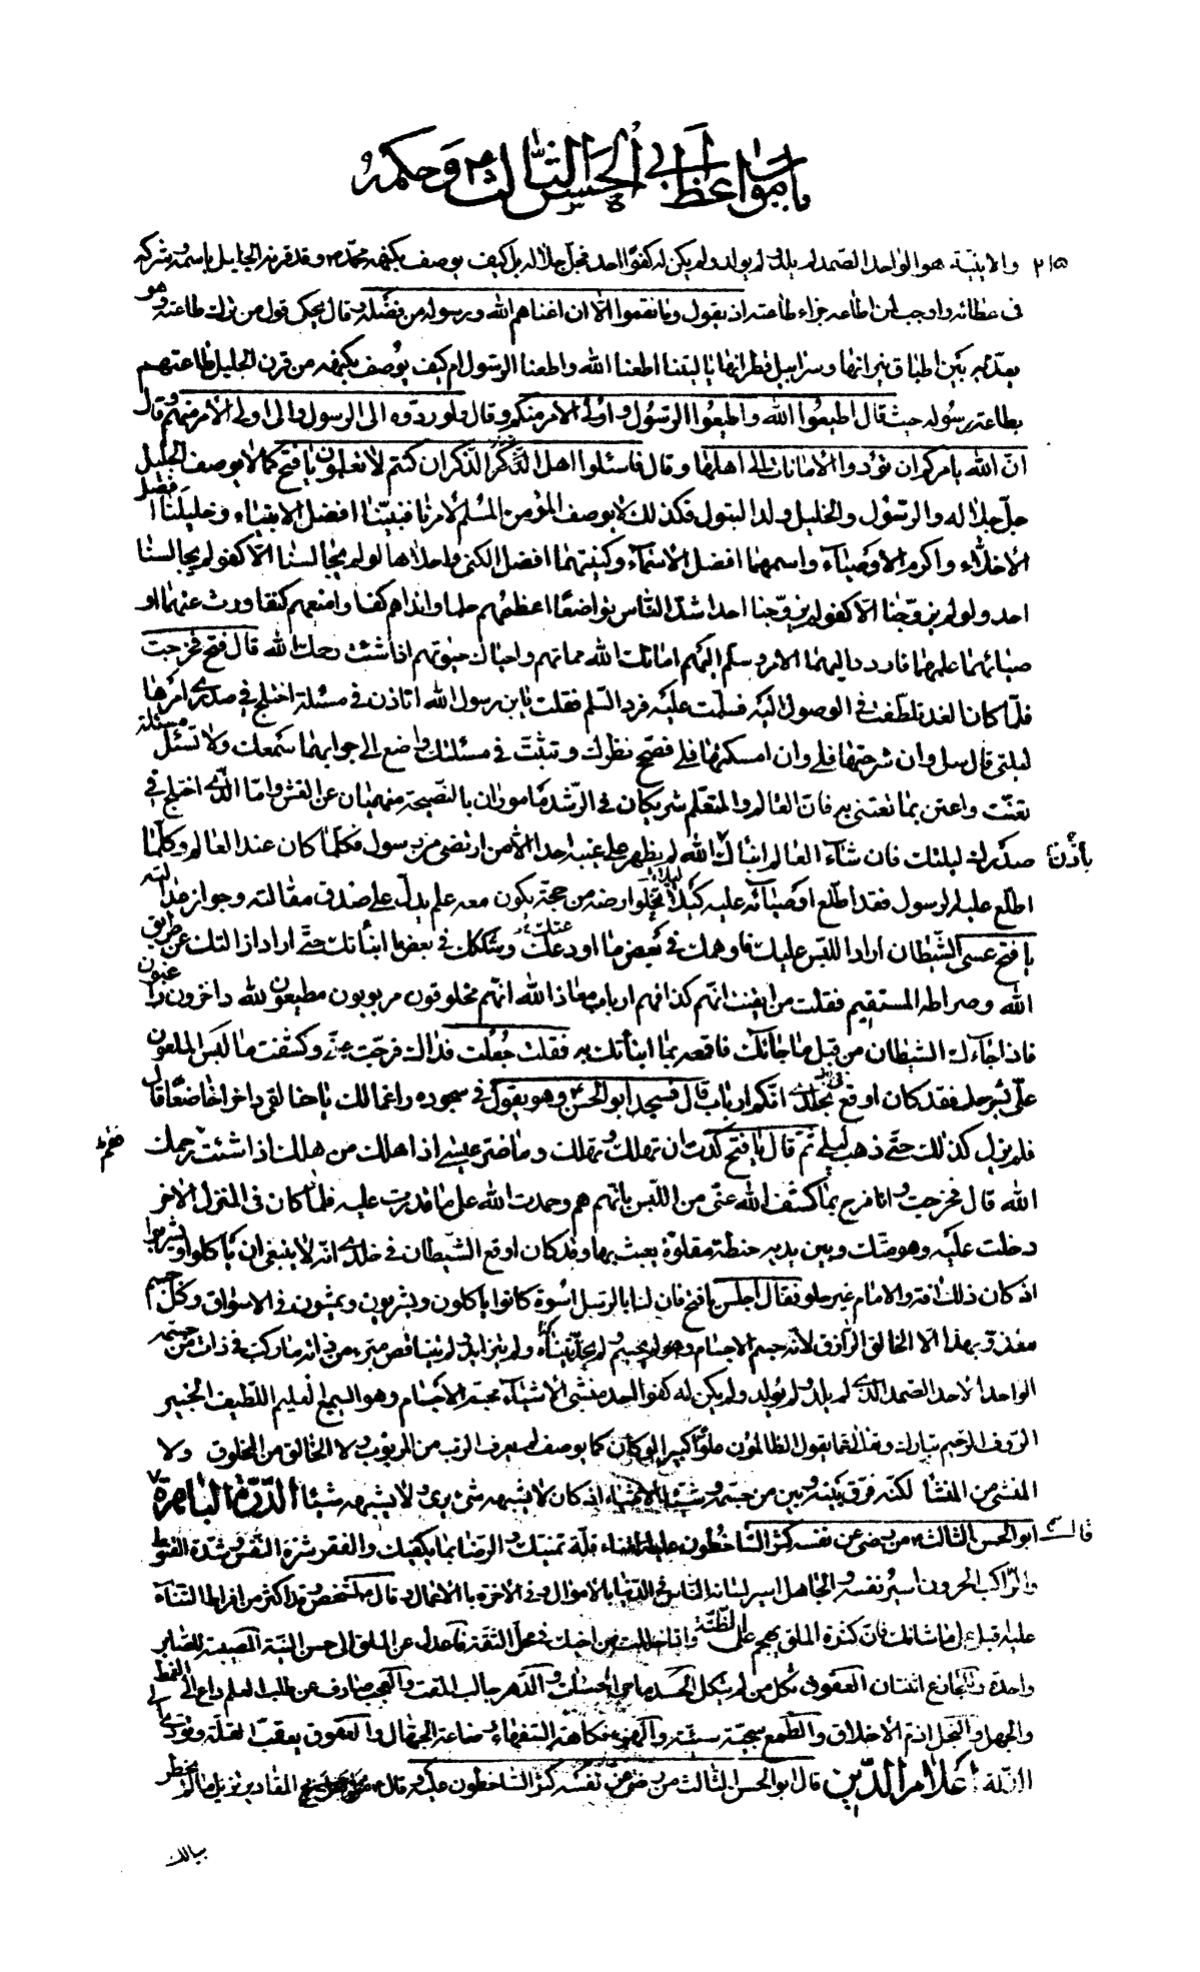 باب مواعظ أبي الحسن الثالث ع وحكمه
٢١٥ والاينية هو الواحد الصمد لم يلد ولم يولد ولم يكن له كفوًا احد فجل جلاله بل كيف يوصف بكنهه محمد ص وقد قرنه الجليل باسمه وشركه
فى عطائه واوجب لمن اطاعه جزاء طاعته اذ يقول وما نقموا الّا ان اغناهم الله ورسوله من فضله وقال يحكى قول من ترك طاعته وهو
يعذّبه بين اطباق نيرانها وسرابيل قطرانها يا ليتنا اطعنا الله واطعنا الرسول ام كيف يوصف بكنهه من قرن الجليل طاعتهم
بطاعة رسوله حيث قال اطيعوا الله واطيعوا الرسول واولى الامر منكم وقال ولو ردّوه الى الرسول والى اولى الامر منهم وقال
انّ الله يامركم ان تؤدوا الامانات الى اهلها وقال فاسئلوا اهل الذكر ان كنتم لا تعلمون يا فتح كما لا يوصف الجليل
جلّ جلاله والرسول والخليل وولد البتول فكذلك لا يوصف المؤمن المسلّم لأمرنا فنبيّنا افضل الانبياء وخليلنا افضل
الأخلّاء واكرم الأوصياء واسمهما افضل الأسماء وكنيتهما افضل الكنى واحلاها لو لم يجالسنا الّا كفو لم يجالسنا
احد ولو لم يزوّجنا الّا كفو لم يزوّجنا احد اشدّ النّاس تواضعًا اعظمهم حلما واندٰاهم كفا وامنعهم كنفا ورث عنهما او
صيائهما علمهما فاردد اليهما الامر وسلّم اليهم اماتك الله مماتهم واحياك حيوتهم اذا شئت رحمك الله قال فتح فخرجت
فلمّا كان الغد تلطّفت فى الوصول اليه فسلّمت عليه فردّ السّلم فقلت يا بن رسول الله اتاذن فى مسئلة اختلج فى صدرى امرها
ليلتى قال سل وان شرحتها فلى وان امسكتها فلى فصحّح نظرك وتثبّت فى مسئلتك واصغ الى جوابها سمعك ولا تسئل مسئلة
تعنّت واعتن بما تعتنى به فانّ العالم والمتعلّم شريكان فى الرّشد مأموران بالنّصيحة منهيان عن الغشّ وامّا الّذى اختلج فى
صدرك ليلتك فان شآء العالم انبأك الله لم يظهر على غيبه احدا الّا من ارتضى من رسول فكلّما كان عند الرسول كان عند العالم وكلّما
اطّلع عليه الرسول فقد اطّلع اوصيآئه عليه كيلا تخلو ارضه من حجّة يكون معه علم يدلّ على صدق مقالته وجواز عدالته
يا فتح عسى الشّيطان اراد اللّبس عليك فاوهمك فى بعض ما اودعتك وشكّك فى بعض ما انبأتك حتّى اراد ازالتك عن طريق
الله وصراطه المستقيم فقلت من ايقنت انّهم كذا فهم ارباب معاذ الله انّهم مخلوقون مربوبون مطيعون لله داخرون راغبون
فاذا جآءك الشيطان من قبل ما جاءك فاقمعه بما انبأتك به فقلت جعلت فداك فرّجت عنّى وكشفت ما لبّس الملعون
علىّ بشرحك فقد كان اوقع فى خلدى انّكم ارباب قال فسجد ابو الحسن ع وهو يقول فى سجوده راغما لك يا خالقى داخرا خاضعًا قال
فلم يزل كذلك حتّى ذهب ليلى ثمّ قال يا فتح كدت ان تهلك وتهلك وما ضرّ عيسى اذا هلك من هلك اذا شئت رحمك
الله قال فخرجت وانا فرح بما كشف الله عنّى من اللّبس بانّهم هم وحمدت الله على ما قدرت عليه فلمّا كان فى المنزل الآخر
دخلت عليه وهو متّك وبين يديه حنطة مقلوّة يعبث بها وقد كان اوقع الشّيطان فى خلدى انّه لا ينبغى ان يأكلوا ويشربوا
اذ كان ذلك افة والامام غير ماوف فقال اجلس يا فتح فان لنا بالرّسل اسوة كانوا ياكلون ويشربون ويمشون فى الاسواق وكل جسم
مغذوّ بهذا الّا الخالق الرّازق لانّه جسّم الاجسام وهو لم يجسّم ولم يجزّء بتناه ولم يتزايد ولم يتناقص مبرّء من ذاته ما ركّب فى ذات من جسّمه
الواحد الاحد الصّمد الّذى لم يلد ولم يولد ولم يكن له كفوا احد منشئ الاشيآء مجسّم الاجسام وهو السميع العليم اللّطيف الخبير
الرّؤف الرّحيم تبارك وتعالى عمّا يقول الظالمون علوّا كبيرا لو كان كما يوصف لم يعرف الرّب من المربوب ولا الخالق من المخلوق ولا
المنشئ من المنشأ لكنّه فرّق بينه وبين من جسّمه وشيّأ الاشياء اذ كان لا يشبهه شئ يرى ولا يشبه شيئا الدّرّة الباهرة
قال ابو الحسن الثالث ع من رضى عن نفسه كثر السّاخطون عليه الغناء قلّة تمنّيك والرضا بما يكفيك والفقر شرّة النّفس وشدّة القنوط
والرّاكب الحرون اسير نفسه والجاهل اسير لسانه النّاس فى الدّنيا بالاموال وفى الآخرة بالأعمال وقال ع لشخص وقد اكثر من افراط الثّناء
عليه اقبل على ما شانك فانّ كثرة الملق يهجم على الظّنّة واذا حللت من اخيك فى محلّ الثقة فاعدل عن الملق الى حسن النيّة المصيبة للصّابر
واحدة وللجازع اثنتان العقوق ثكل من لم يثكل الحسد ماحى الحسنات والدّهر جالب المقت والعجب صارف عن طلب العلم داع الى الغمط
والجهل والبخل اذمّ الأخلاق والطّمع سجيّة سيّئة والهزء فكاهة السّفهاء وصناعة الجهّال والعقوق يعقب القلّة ويؤدى الى
الذّلّة اعلام الدّين قال ابو الحسن الثالث من رضى عن نفسه كثر السّاخطون عليه وقال ع المقادير تريك ما لم يخطر
ببالك